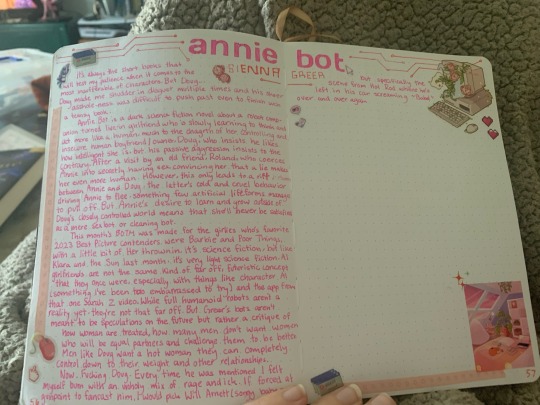 annie bot
SIENNA GREER
It's always the short books that
will test my patience when it comes to the
most insufferable of characters. But Doug...
Doug made me snarl in disgust multiple times and his sheer
asshole-ness was difficult to push past even to finish such
a short book.
Annie Bot is a dark science fiction novel about a robot
turned live-in girlfriend who is slowly learning to think and
act more like a human, much to the chagrin of her controlling and
insecure human boyfriend/owner, Doug, who insists he likes
how intelligent she is but his passive aggression insists to the
contrary. After a visit by an old friend, Roland, who coerces
Annie into secretly having sex, convincing her that a lie makes
her even more human. However, this only leads to a rift
between Annie and Doug, the latter's cold and cruel behavior
driving Annie to flee something few artificial lifeforms manage
to pull off. But Annie's desire to learn and grow outside of
Doug's closely controlled world means that she'll never be satisfied
as a mere sexbot or cleaning bot.
This month's BOTM was made for the girlies who's favorite
2023 Best Picture contenders were Barbie and Poor Things,
with a little bit of Her thrown in. It's science fiction, but like
Klara and the Sun last month, it's very light science fiction. AI
girlfriends are not the same kind of far off, futuristic concept
that they once were, especially with things like character.AI
(something I've been too embarrassed to try) and the app from
that one Sarah Z video. While full humanoid robots aren't a
reality yet, they're not that far off. But Greer's bots aren't
meant to be speculations on the future but rather a critique of
how women are treated, how many men don't want women
who will be equal partners and challenge them to be better
Men like Doug want a hot woman they can completely
control down to their weight and other relationships.
Now. Fucking Doug. Every time he was mentioned I felt
myself burn with an unholy mix of rage and ick. If forced at
gunpoint to fancast him, I would pick Arnett (sorry
scene but specifically the
scene from Hot Rod where he's
left in his car screaming "Babe"
over and over again
57